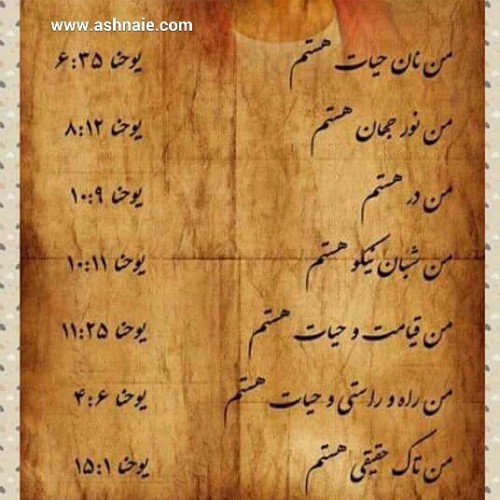 www.ashnaie.com
من نان حیات هستم یوحنا ۶:۳۵
من نور جهان هستم یوحنا ۸:۱۲
من در هستم یوحنا ۱۰:۹
من شبان نیکو هستم یوحنا ۱۰:۱۱
من قیامت و حیات هستم یوحنا ۱۱:۲۵
من راه و راستی و حیات هستم یوحنا ۴:۶
من تاک حقیقی هستم یوحنا ۱۵:۱